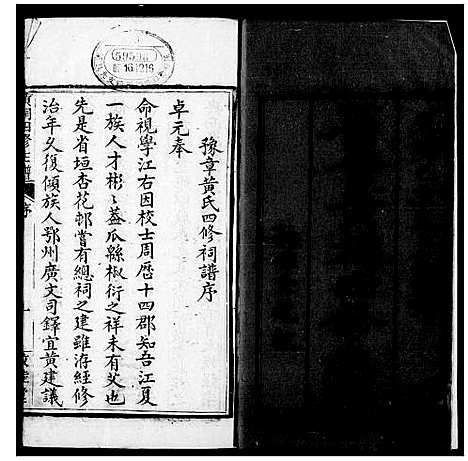 豫章黃氏四修祠譜序
卓元奉
命視學江右因校士周歷十四郡知吾江夏
一族人才彬彬蓋瓜緜椒衍之祥未有艾也
先是省垣杏花邨嘗有總祠之建雖洊經修
治年久復傾族人鄂州廣文司鐸宜黃建議